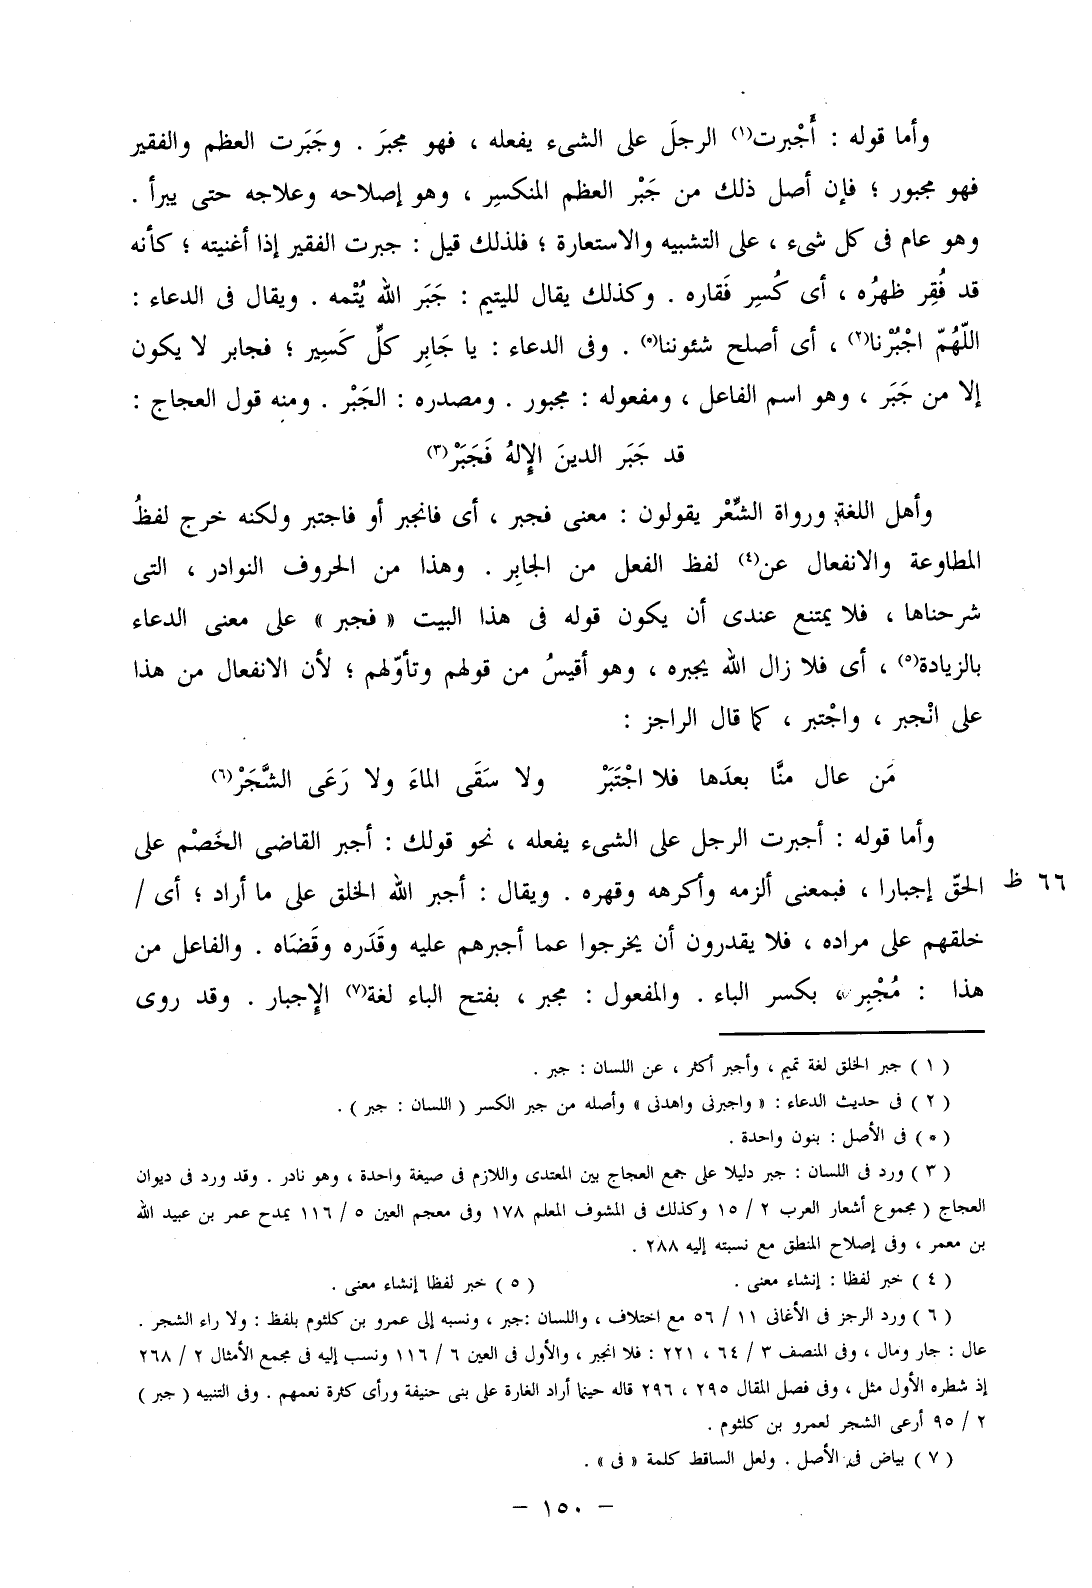 وأما قوله : أَجْبرت(١) الرجلَ على الشىء يفعله ، فهو مجبَر . وجَبَرت العظم والفقير
فهو مجبور ؛ فإن أصل ذلك من جَبْر العظم المنكسِر ، وهو إصلاحه وعلاجه حتى يبرأ .
وهو عام فى كل شىء ، على التشبيه والاستعارة ؛ فلذلك قيل : جبرت الفقير إذا أغنيته ؛ كأنه
قد فُقِر ظهرُه ، أى كُسِر فَقاره . وكذلك يقال لليتيم : جَبَر الله يُتْمه . ويقال فى الدعاء :
اللّهُمّ اجْبُرْنا(٢) ، أى أصلح شئوننا(*) . وفى الدعاء : يا جَابِر كلِّ كَسِير ؛ فجابر لا يكون
إلا من جَبَر ، وهو اسم الفاعل ، ومفعوله : مجبور . ومصدره : الجَبْر . ومنه قول العجاج :
قد جَبَر الدينَ الإِلهُ فَجَبَرْ(٣)
وأهل اللغة ورواة الشِّعْر يقولون : معنى فجبر ، أى فانجبر أو فاجتبر ولكنه خرج لفظُ
المطاوعة والانفعال عن(٤) لفظ الفعل من الجابِر . وهذا من الحروف النوادر ، التى
شرحناها ، فلا يمتنع عندى أن يكون قوله فى هذا البيت « فجبر » على معنى الدعاء
بالزيادة(٥) ، أى فلا زال الله يجبره ، وهو أقيسُ من قولهم وتأوّلهم ؛ لأن الانفعال من هذا
على انْجبر ، واجْتبر ، كما قال الراجز :
مَن عال منَّا بعدَها فلا اجْتَبَرْ ولا سَقَى الماءَ ولا رَعَى الشَّجَرْ(٦)
وأما قوله : أجبرت الرجل على الشىء يفعله ، نحو قولك : أجبر القاضى الخَصْم على
الحقّ إجبارا ، فبمعنى ألزمه وأكرهه وقهره . ويقال : أجبر الله الخلق على ما أراد ؛ أى / ٦٦ ظ
خلقهم على مراده ، فلا يقدرون أن يخرجوا عما أجبرهم عليه وقَدَره وقَضَاه . والفاعل من
هذا : مُجْبِر ، بكسر الباء . والمفعول : مجبر ، بفتح الباء لغة(٧) الإِجبار . وقد روى
( ١ ) جبر الخلق لغة تميم ، وأجبر أكثر ، عن اللسان : جبر .
( ٢ ) فى حديث الدعاء : « واجبرنى واهدنى » وأصله من جبر الكسر ( اللسان : جبر ) .
( * ) فى الأصل : بنون واحدة .
( ٣ ) ورد فى اللسان : جبر دليلا على جمع العجاج بين المتعدى واللازم فى صيغة واحدة ، وهو نادر . وقد ورد فى ديوان
العجاج ( مجموع أشعار العرب ٢ / ١٥ وكذلك فى المشوف المعلم ١٧٨ وفى معجم العين ٥ / ١١٦ يمدح عمر بن عبيد الله
بن معمر ، وفى إصلاح المنطق مع نسبته إليه ٢٨٨ .
( ٤ ) خبر لفظا : إنشاء معنى . ( ٥ ) خبر لفظا إنشاء معنى .
( ٦ ) ورد الرجز فى الأغانى ١١ / ٥٦ مع اختلاف ، واللسان :جبر ، ونسبه إلى عمرو بن كلثوم بلفظ : ولا راء الشجر .
عال : جار ومال ، وفى المنصف ٣ / ٦٤ ، ٢٢١ : فلا انجبر ، والأول فى العين ٦ / ١١٦ ونسب إليه فى مجمع الأمثال ٢ / ٢٦٨
إذ شطره الأول مثل ، وفى فصل المقال ٢٩٥ ، ٢٩٦ قاله حينما أراد الغارة على بنى حنيفة ورأى كثرة نعمهم . وفى التنبيه ( جبر )
٢ / ٩٥ أرعى الشجر لعمرو بن كلثوم .
( ٧ ) بياض فى الأصل . ولعل الساقط كلمة « فى » .
– ١٥٠ –